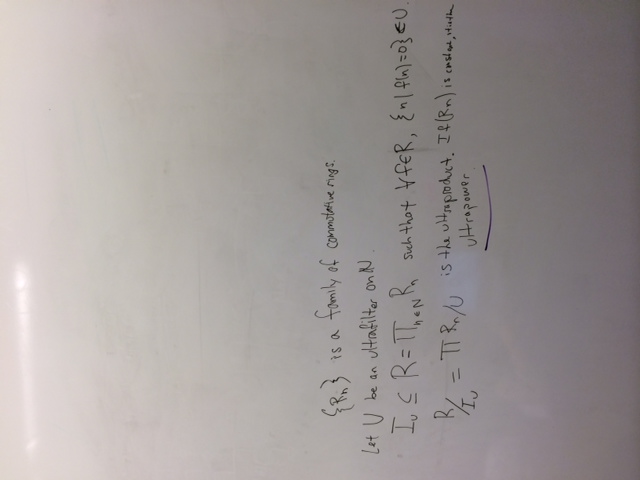 {Rₙ} is a family of commutative rings.
Let U be an ultrafilter on ℕ.
I_U ⊆ R = ∏_{n∈ℕ} Rₙ such that ∀f∈R, {n | f(n)=0} ∈ U.
R/I_U = ∏ Rₙ/U is the ultraproduct. If (Rₙ) is constant, it is the
ultrapower.